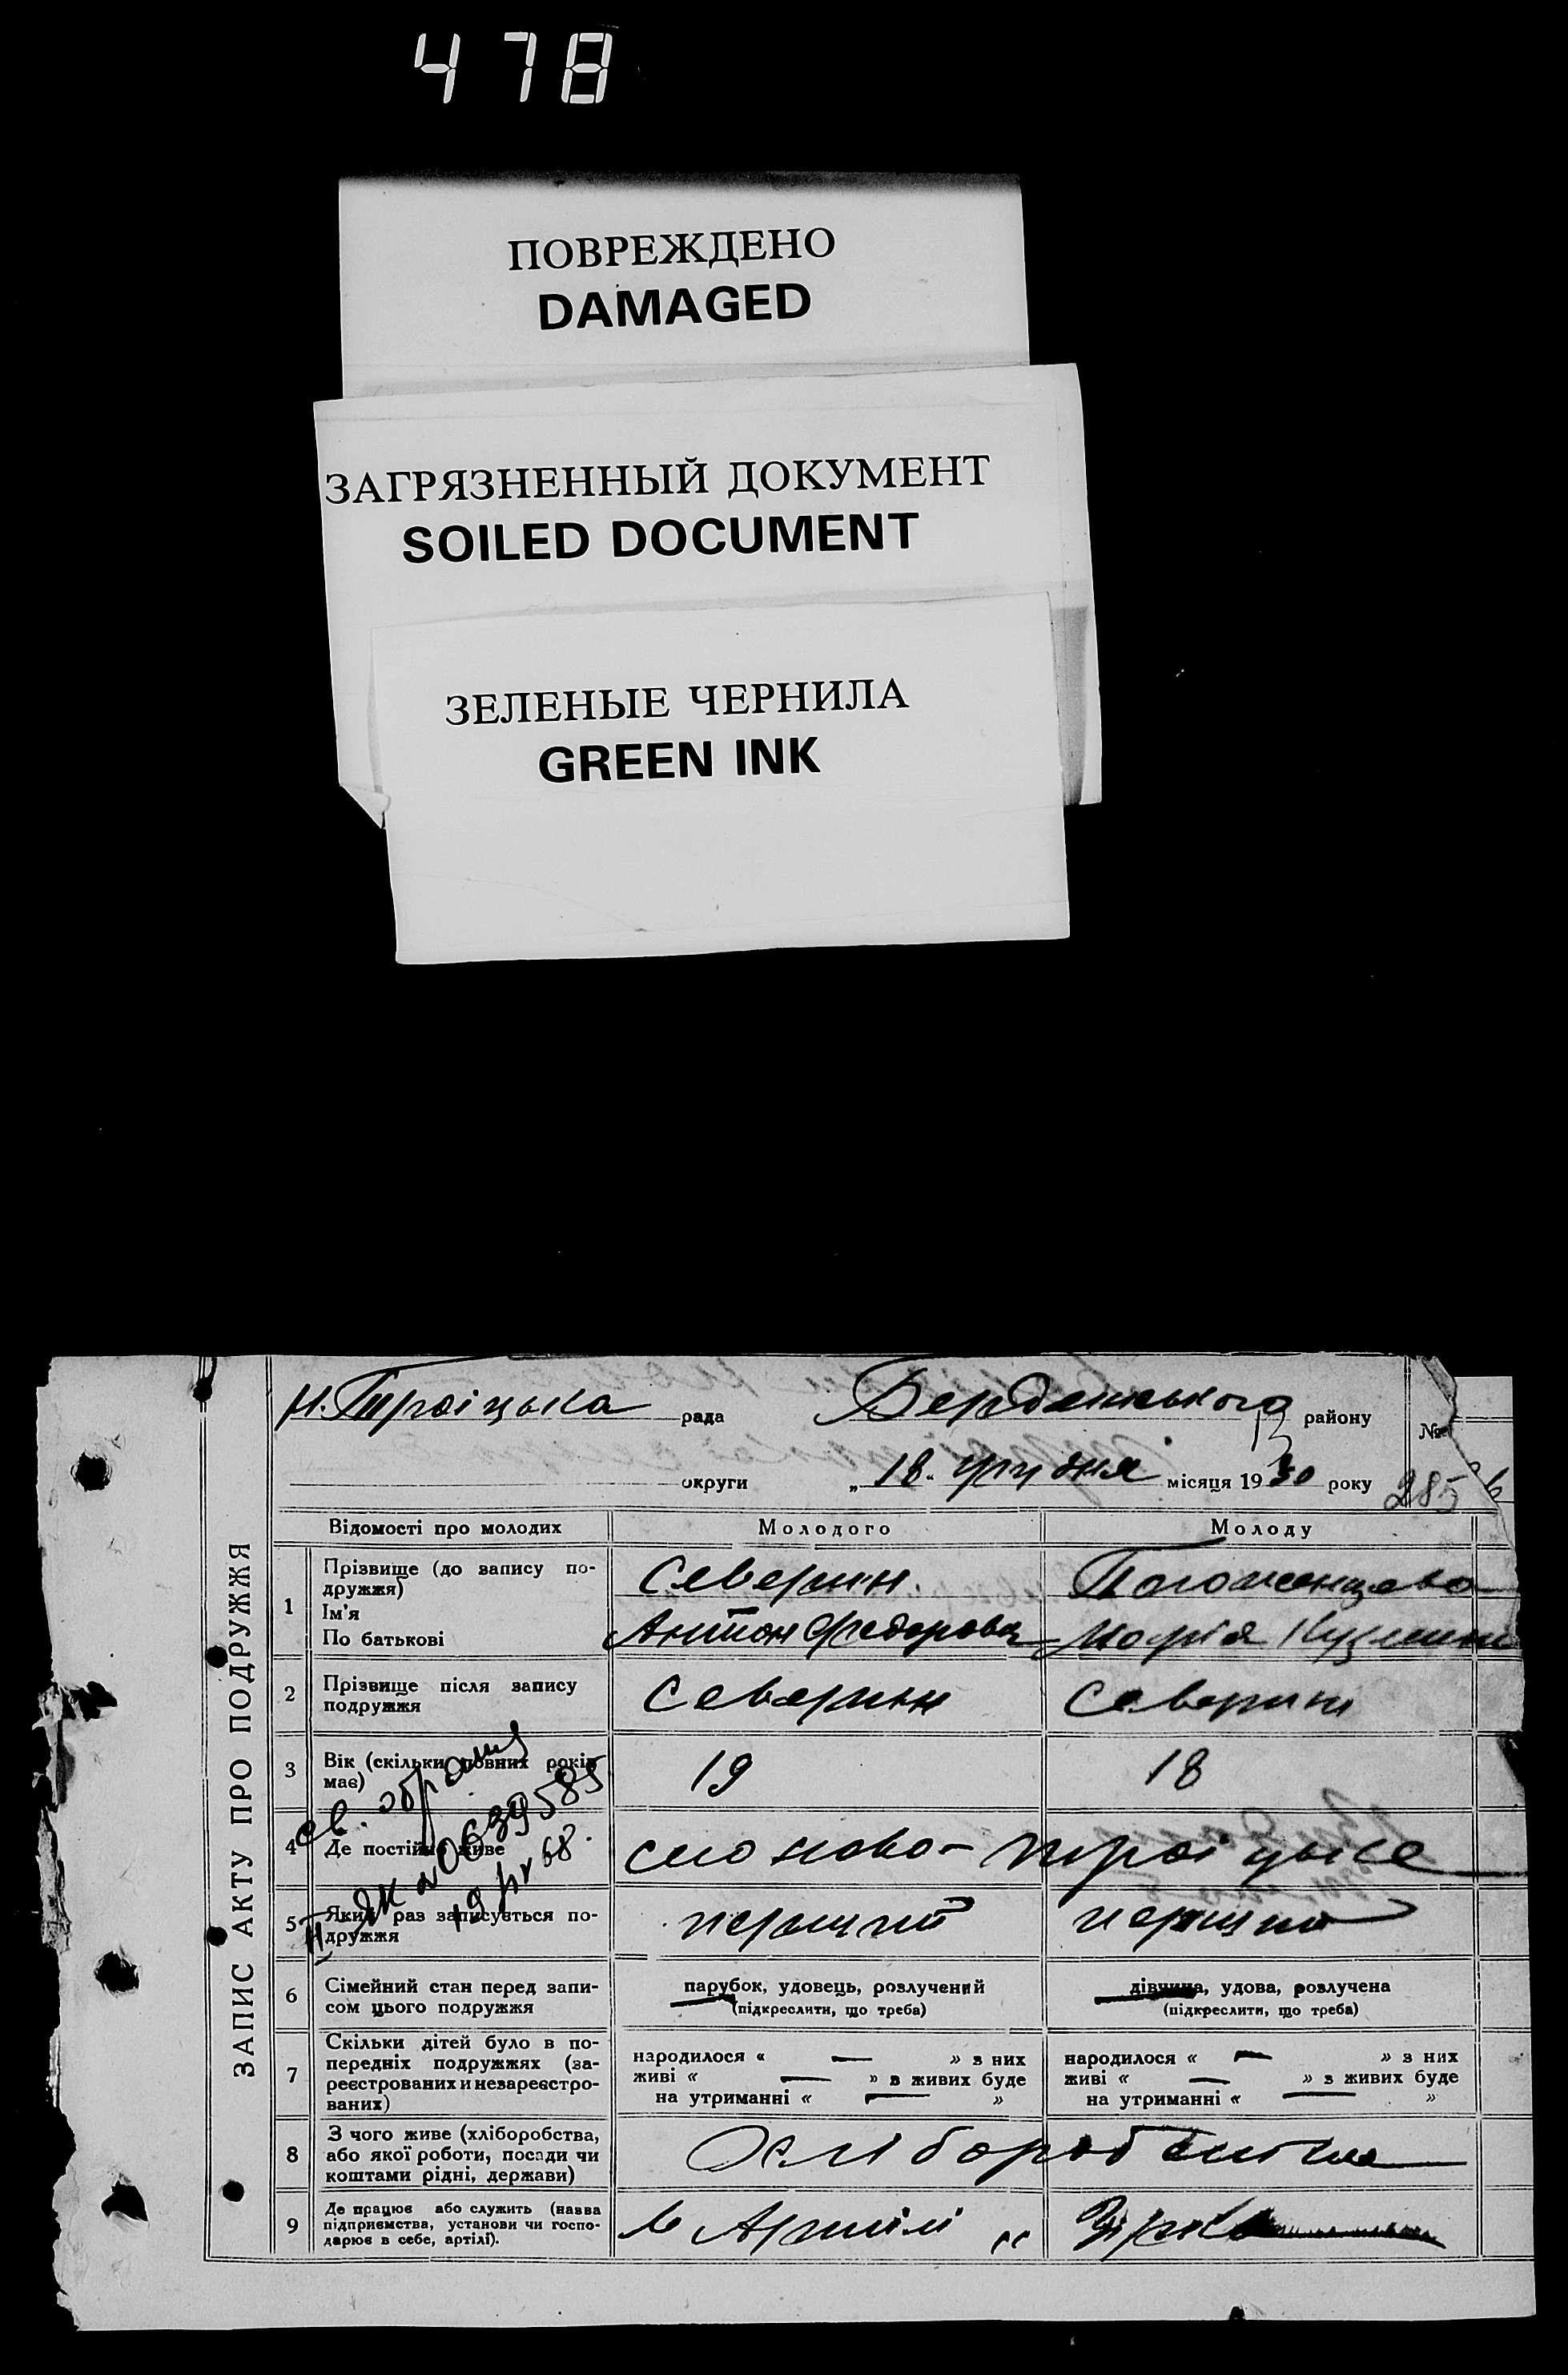 478
ПОВРЕЖДЕНО
DAMAGED
ЗАГРЯЗНЕННЫЙ ДОКУМЕНТ
SOILED DOCUMENT
ЗЕЛЕНЫЕ ЧЕРНИЛА
GREEN INK
ЗАПИС АКТУ ПРО ПОДРУЖЖЯ
Н. Троіцька рада Бердянського району №
округи „18" грудня місяця 1930 року 285
Відомості про молодих Молодого Молоду
1 Прізвище (до запису по-
дружжя) Северин
Ім'я
По батькові Антон Федорович Марія
2 Прізвище після запису
подружжя Северин Северин
3 Вік (скільки повних років
має) 19 18
4 Де постійно живе село Ново-Троіцьке
5 Який раз записується по-
дружжя перший перший
6 Сімейний стан перед запи-
сом цього подружжя
парубок, удовець, розлучений
(підкреслити, що треба)
дівчина, удова, розлучена
(підкреслити, що треба)
7 Скільки дітей було в по-
передніх подружжях (за-
реєстрованих и незареєстро-
ваних)
народилося « — » з них
живі « — » в живих буде
на утриманні « — »
народилося « — » з них
живі « — » з живих буде
на утриманні « — »
8 З чого живе (хліборобства,
або якої роботи, посади чи
коштами рідні, держави) Хліборобство
9 Де працює або служить (назва
підприємства, установи чи госпо-
дарює в себе, артілі). в Артілі „
св. образца
II ЯК № 0639585